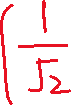 ( 1/√2